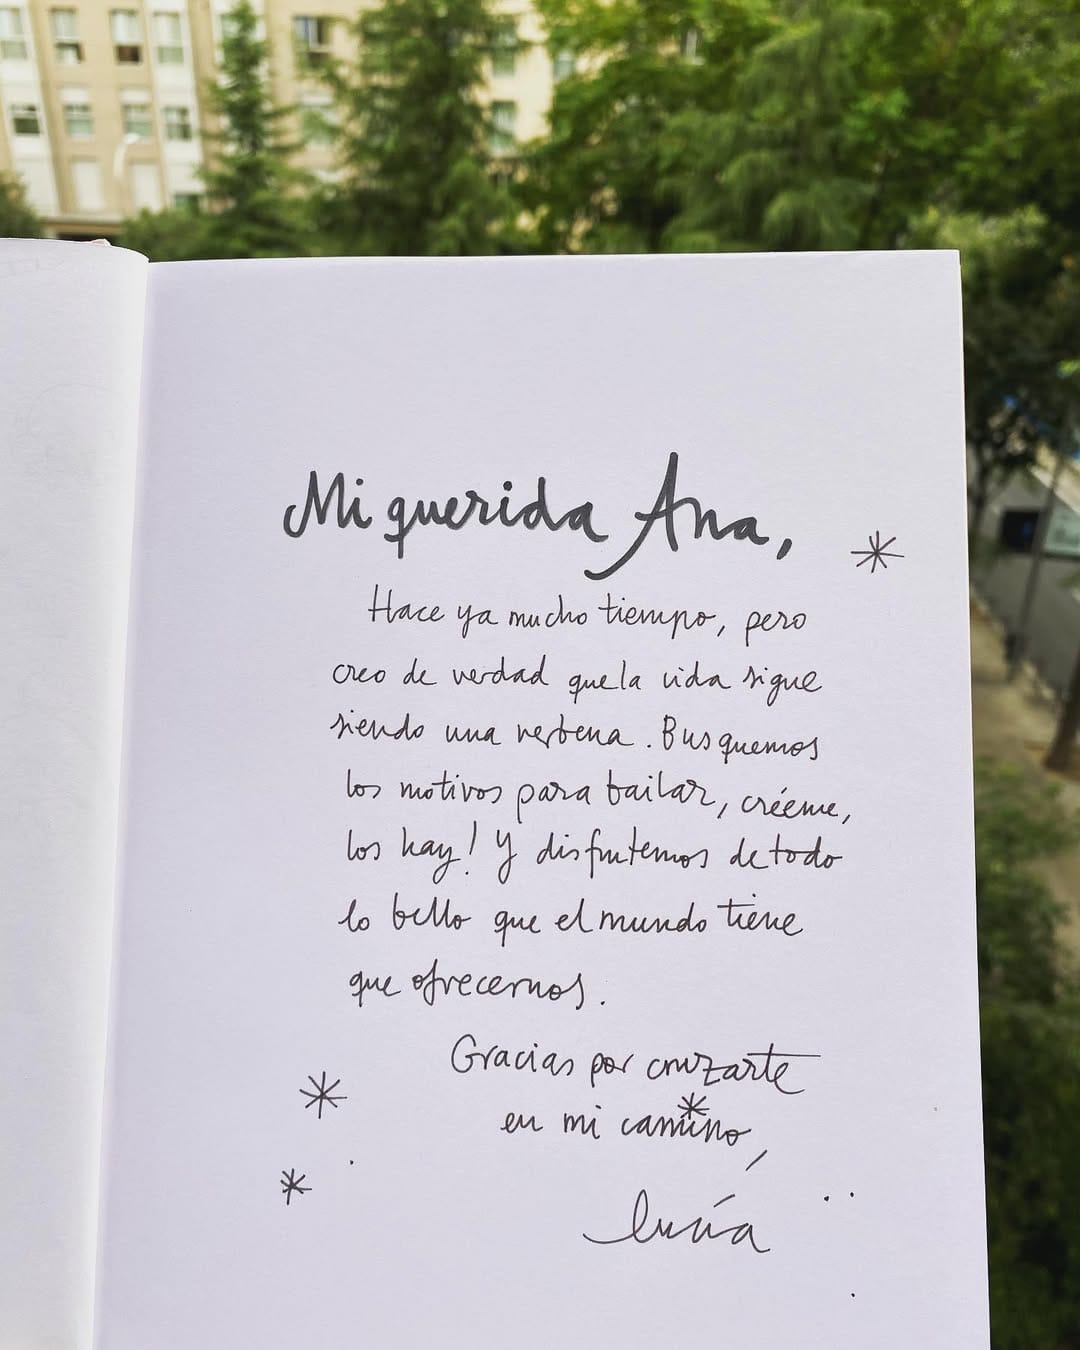 Mi querida Ana,
Hace ya mucho tiempo, pero
creo de verdad que la vida sigue
siendo una verbena. Busquemos
los motivos para bailar, créeme,
los hay! Y disfrutemos de todo
lo bello que el mundo tiene
que ofrecernos.
Gracias por cruzarte
en mi camino,
Lucía